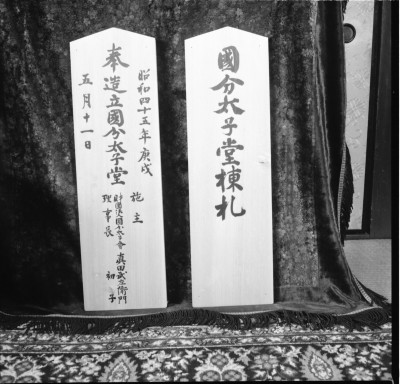 國分太子堂棟札
昭和四十五年庚戌
五月十一日
奉造立國分太子堂
施主
財團法人國分太子會
理事長
眞田武左衛門
初子